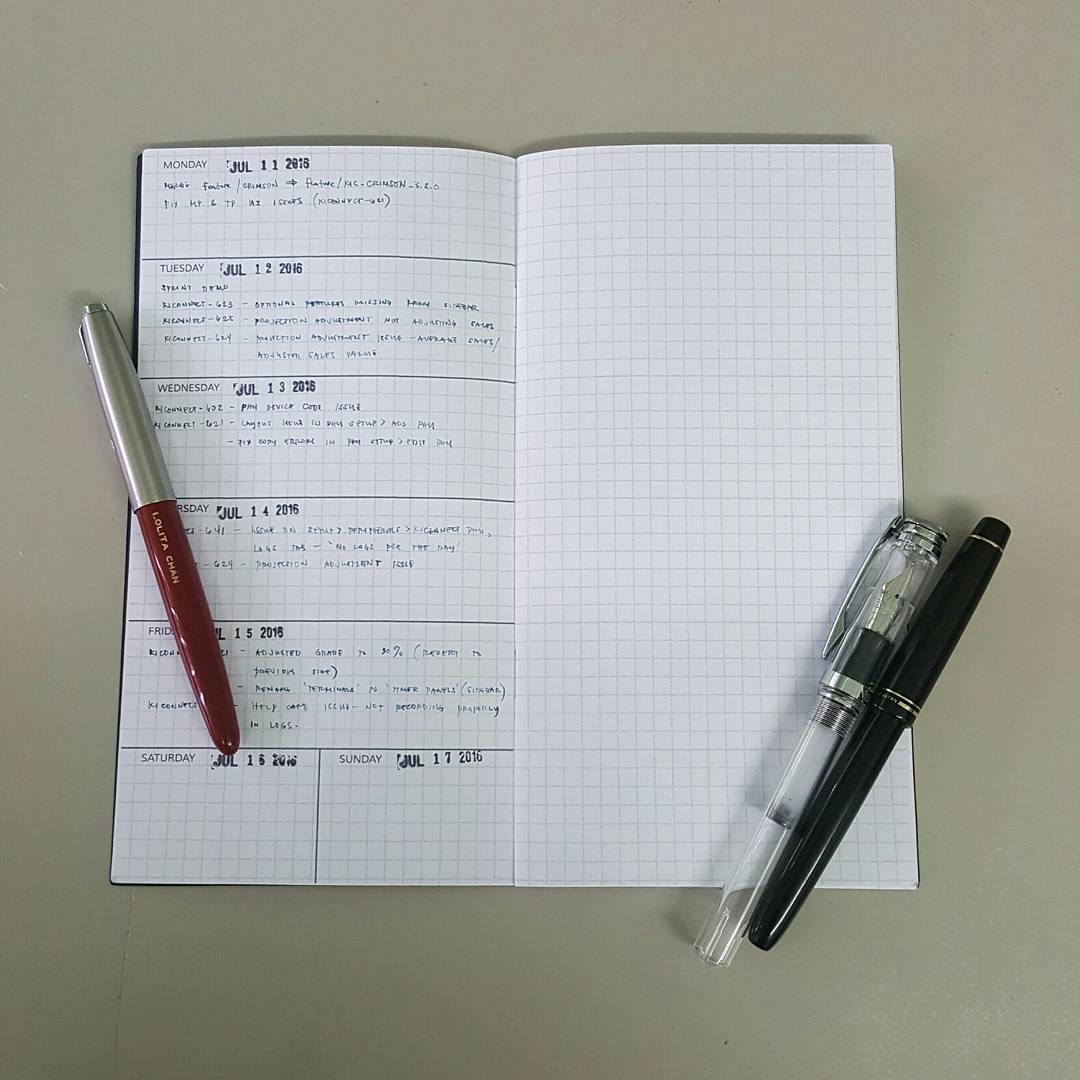 MONDAY JUL 11 2016
MERGE feature/CRIMSON ⇒ feature/KIC-CRIMSON_3.2.0
FIX MP & TP UI ISSUES (KICONNECT-621)
TUESDAY JUL 12 2016
SPRINT DEMO
KICONNECT-623 – OPTIONAL FEATURES MISSING FROM SIDEBAR
KICONNECT-625 – PROJECTION ADJUSTMENT NOT ADJUSTING SALES
KICONNECT-624 – PROJECTION ADJUSTMENT ISSUE – AVERAGE SALES/
ADJUSTED SALES VALUE
WEDNESDAY JUL 13 2016
KICONNECT-622 – PHU DEVICE CODE ISSUE
KICONNECT-621 – LAYOUT ISSUE IN PHU SETUP > ADD PHU
– FIX COPY ERRORS IN PHU SETUP > EDIT PHU
RSDAY JUL 14 2016
-641 – ISSUE ON SETUP > PERIPHERALS > KICONNECT PHU,
LOGS TAB – 'NO LOGS FOR THE DAY'
-624 – PROJECTION ADJUSTMENT ISSUE
FRID JUL 15 2016
KICONN 21 – ADJUSTED GRADE TO 90% (REVERT TO
PREVIOUS SIZE)
– RENAME 'TERMINALS' TO 'TIMER PANELS' (SIDEBAR)
KICONNECT – HELP CARD ISSUE – NOT RECORDING PROPERLY
IN LOGS.
SATURDAY JUL 16 2016
SUNDAY JUL 17 2016
LOLITA CHAN